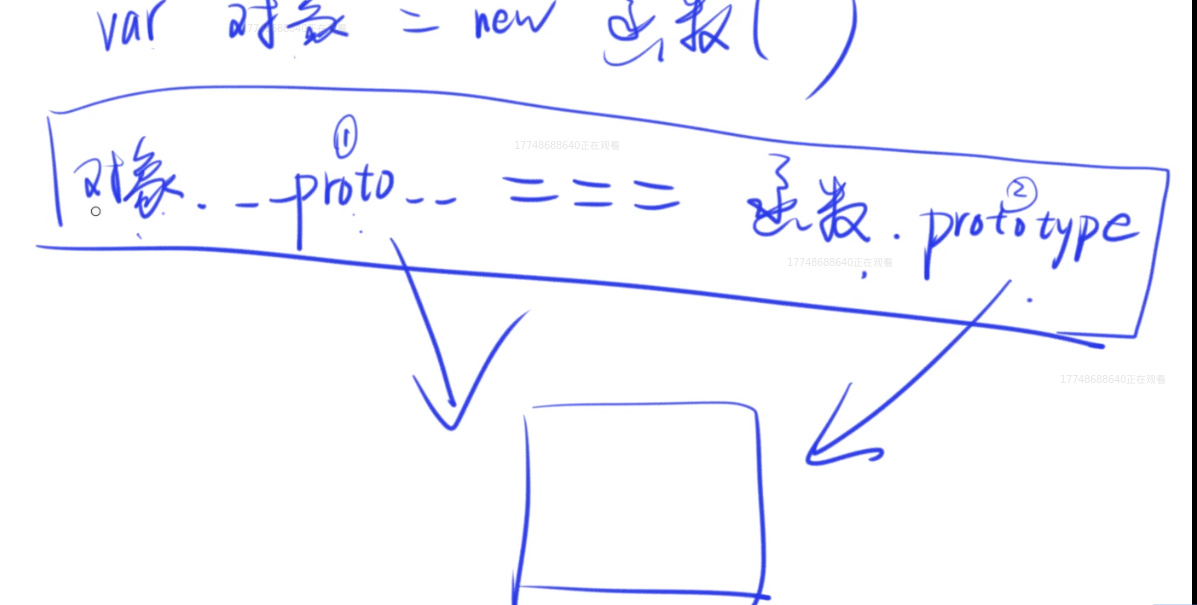 var 对象 = new 函数()
①
②
对象.__proto__ === 函数.prototype
17748688640正在观看
17748688640正在观看
17748688640正在观看